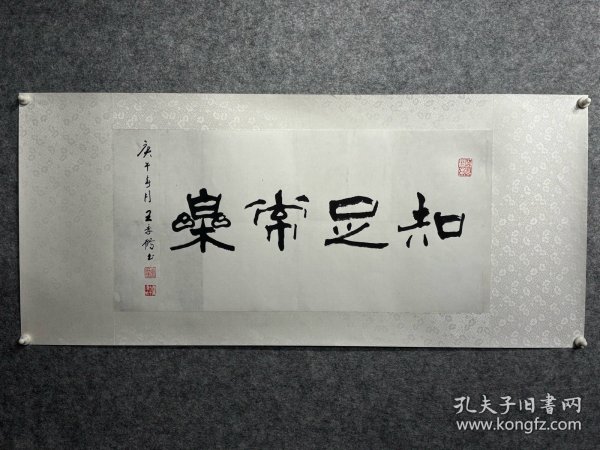 知足常樂
庚午春月 王季鹤书
孔夫子旧書网
www.kongfz.com